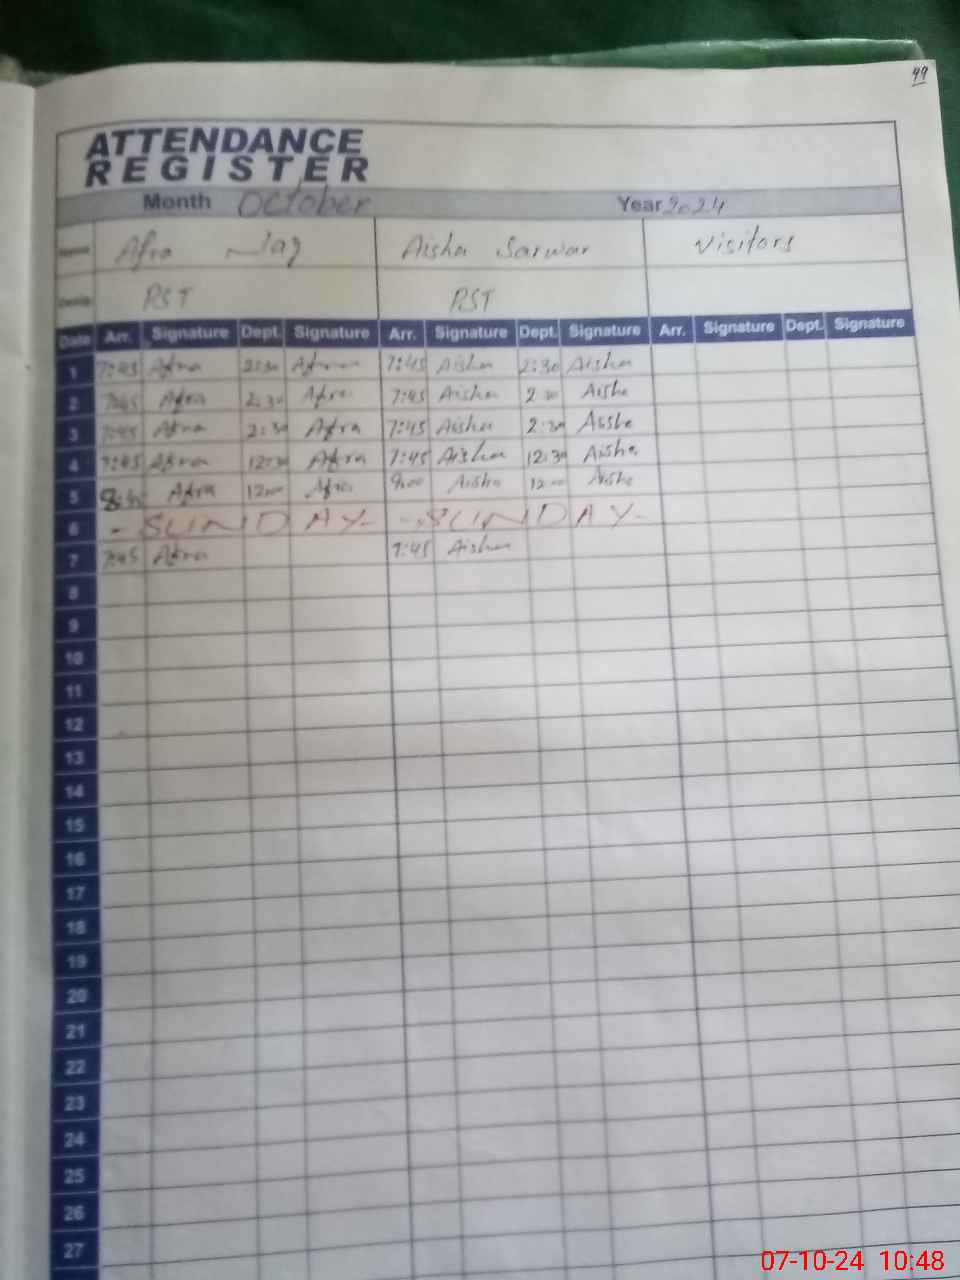 99
ATTENDANCE
REGISTER
Month October Year 2024
Name Afra Naz Aisha Sarwar Visitors
PST PST
Date Arr. Signature Dept. Signature Arr. Signature Dept. Signature Arr. Signature Dept. Signature
1 7:45 Afra 2:30 Afra 7:45 Aisha 2:30 Aisha
2 7:45 Afra 2:30 Afra 7:45 Aisha 2:30 Aisha
3 7:45 Afra 2:30 Afra 7:45 Aisha 2:30 Aisha
4 7:45 Afra 12:30 Afra 7:45 Aisha 12:30 Aisha
5 Afra 12:00 Afra Aisha 12:00 Aisha
6 - SUNDAY- - SUNDAY-
7 7:45 Afra 7:45 Aisha
8
9
10
11
12
13
14
15
16
17
18
19
20
21
22
23
24
25
26
27
07-10-24 10:48